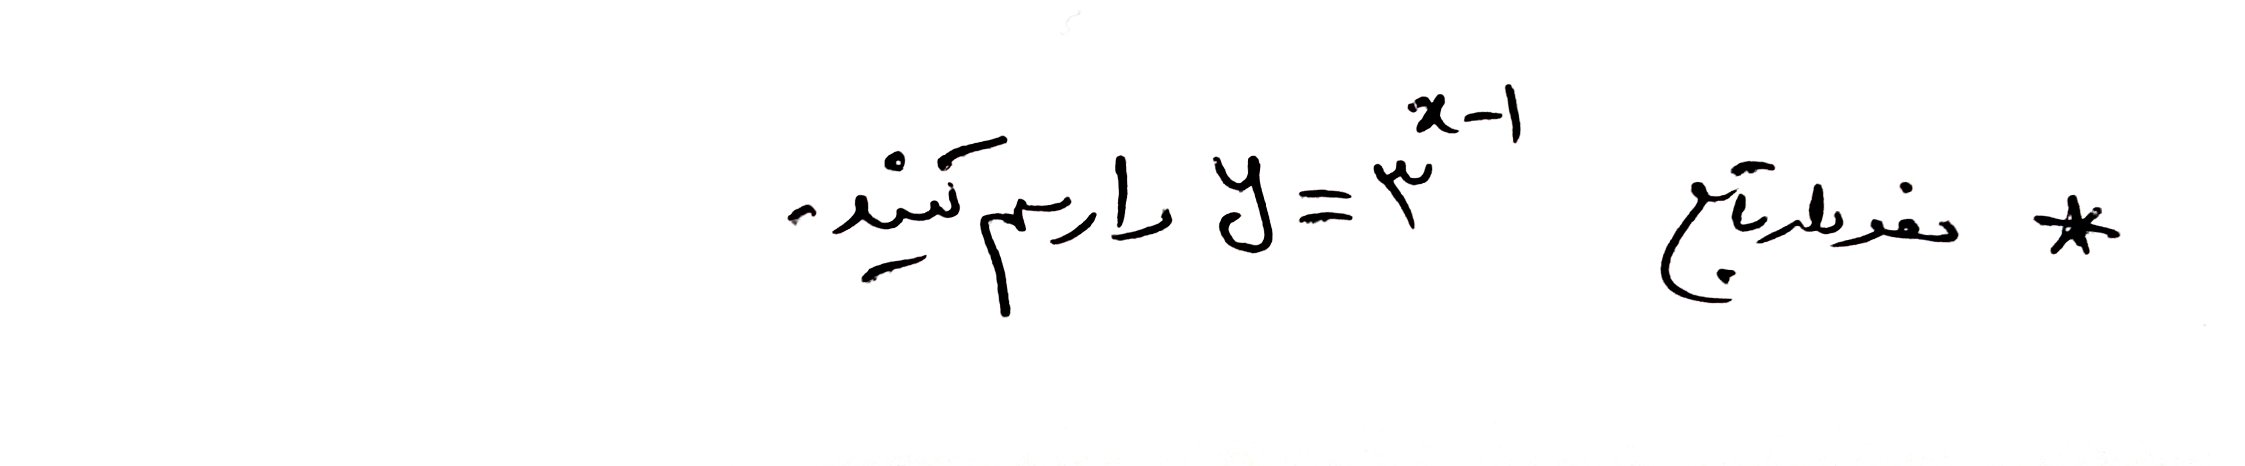 * نمودار تابع y = ۳^{x-۱} را رسم کنید.